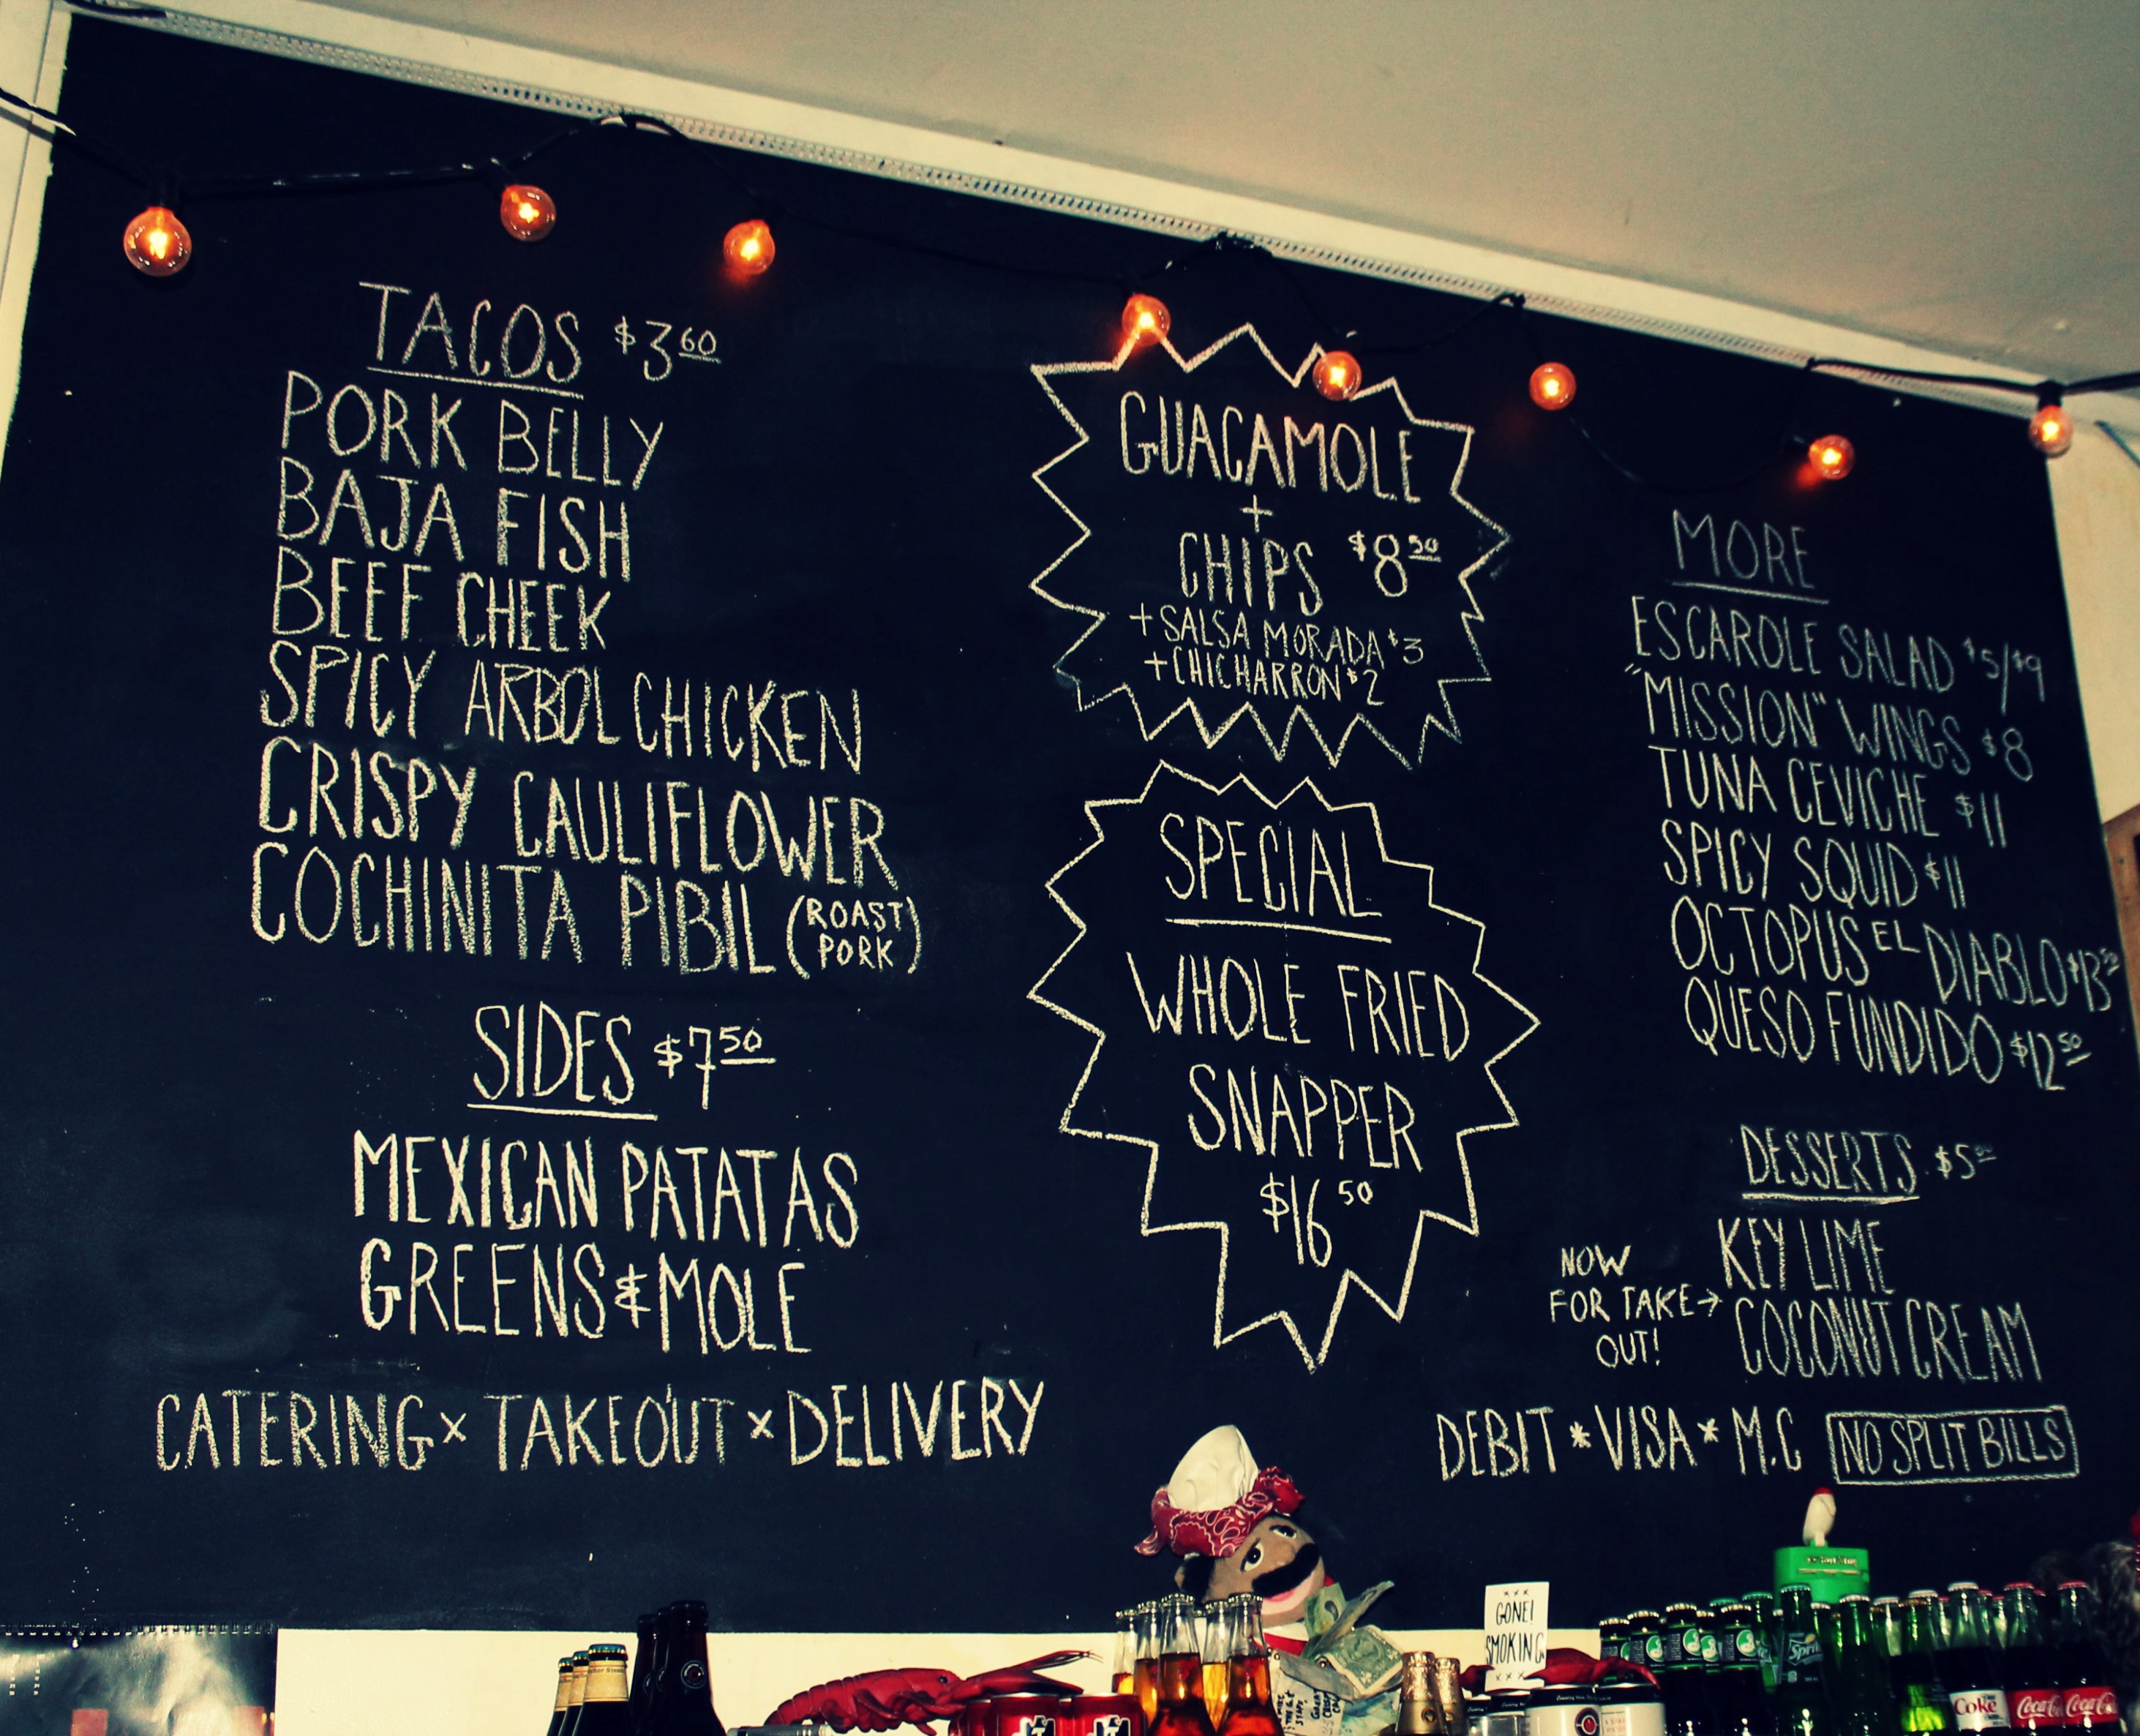 TACOS $3.60
PORK BELLY
BAJA FISH
BEEF CHEEK
SPICY ARBOL CHICKEN
CRISPY CAULIFLOWER
COCHINITA PIBIL (ROAST PORK)
SIDES $7.50
MEXICAN PATATAS
GREENS & MOLE
CATERING x TAKEOUT x DELIVERY
GUACAMOLE
+
CHIPS $8.50
+ SALSA MORADA $3
+ CHICHARRON $2
SPECIAL
WHOLE FRIED
SNAPPER
$16.50
MORE
ESCAROLE SALAD $5/$9
"MISSION" WINGS $8
TUNA CEVICHE $11
SPICY SQUID $11
OCTOPUS EL DIABLO $13.50
QUESO FUNDIDO $12.50
DESSERTS $5.00
KEY LIME
COCONUT CREAM
NOW
FOR TAKE →
OUT!
DEBIT * VISA * M.C NO SPLIT BILLS
xxx
GONE!
SMOKING
xxx
Sprite
Coke
Coca-Cola
Coca-Cola